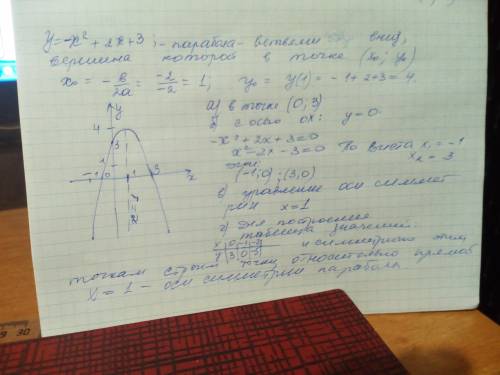 y=-x²+2x+3; - парабола - ветвями вниз,
вершина которой в точке (x₀; y₀)
x₀ = -в/2a = -2/-2 = 1, y₀ = y(1) = -1+2+3=4.
a) в точке (0; 3)
с осью ox: y=0
-x²+2x+3=0
x²-2x-3=0 По Виета x₁=-1
x₂=3
(-1;0); (3;0)
в) уравнение оси симмет
рии x=1
г) для построения
таблица значений.
x 0 -1 -2
y 3 0 -5
и симметрично этим
точкам строим точки относительно прямой
x=1 - оси симметрии параболы
y
4
3
1
-1 0 1 3 x
x=1
30